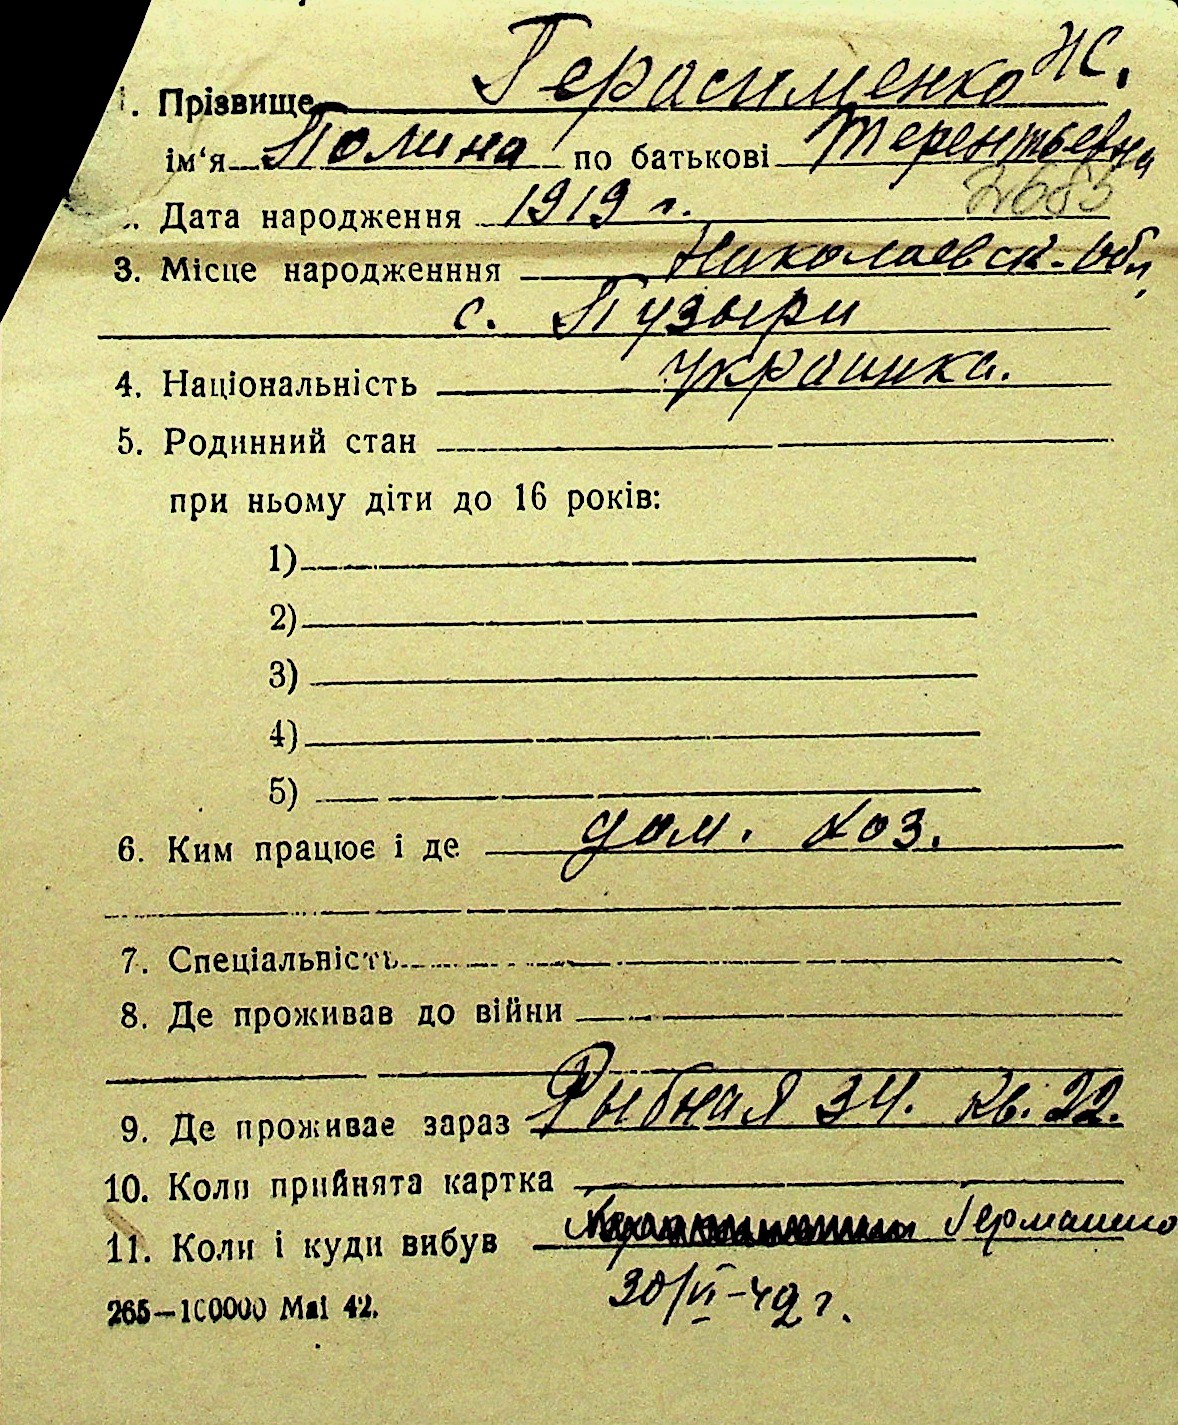 НС.
1. Прізвище Герасименко
ім‘я Полина по батькові Терентьевна
2685
2. Дата народження 1919 г.
3. Місце народженння Николаевск. обл,
с. Пузыри
4. Національність украинка.
5. Родинний стан
при ньому діти до 16 років:
1)
2)
3)
4)
5)
6. Ким працює і де дом. хоз.
7. Спеціальність
8. Де проживав до війни
9. Де проживає зараз Рыбная 34. кв. 22.
10. Коли прийнята картка
11. Коли і куди вибув Германию
30/VI-42 г.
265—100000 Mai 42.